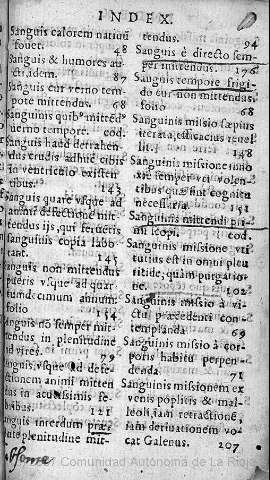 INDEX.
Sanguis calorem natiuũ
fouet. 48
Sanguis & humores au
ctri adem. 87
Sanguis cur verno tem
pore mittendus. 68
Sanguinis quib⁹ mitted⁹
verno tempore. cod.
Sanguis haud detrahen
dus crudis adhuc cibis
in ventriculo existen
tibus. 143
Sanguis quare vsque ad
animi defectione mit
tendus ijs, qui feruetis
sanguinis copia labo
rant. 145
Sanguis non mittendus
pueris vsque ad quar
tum decimum annum.
folio 154
Sanguis nō semper mit
tendus in plenitudine
ad vires. 79
Sanguis vsque ad defe
ctionem animi mitten
dus in acutissimis fe
bribus. 121
Sanguis interdum præter
plenitudine mit
tendus. 94
Sanguis è directo sem
per mittendus. 176
Sanguis tempore frigi
do cur non mittendus.
folio 68
Sanguinis missio sæpius
iterata, efficacius reuel
lit. 148
Sanguinis missione inno
xie semper vti volen
tibus quæ sint cognitu
necessaria. 151
Sanguinis mittendi
scopi. cod.
Sanguinis missione vti
tutius est in omni plu
ritide, quàm purgatio
ne. 102
Sanguinis missio à vi
ctu præcedenti con
templanda 69
Sanguinis missio à cor
poris habitu perpen
denda. 71
Sanguinis missionem ex
venis poplitis & mal
leoli, iam retractione,
iam deriuationem vo
cat Galenus. 207
Comunidad Autónoma de La Rioja